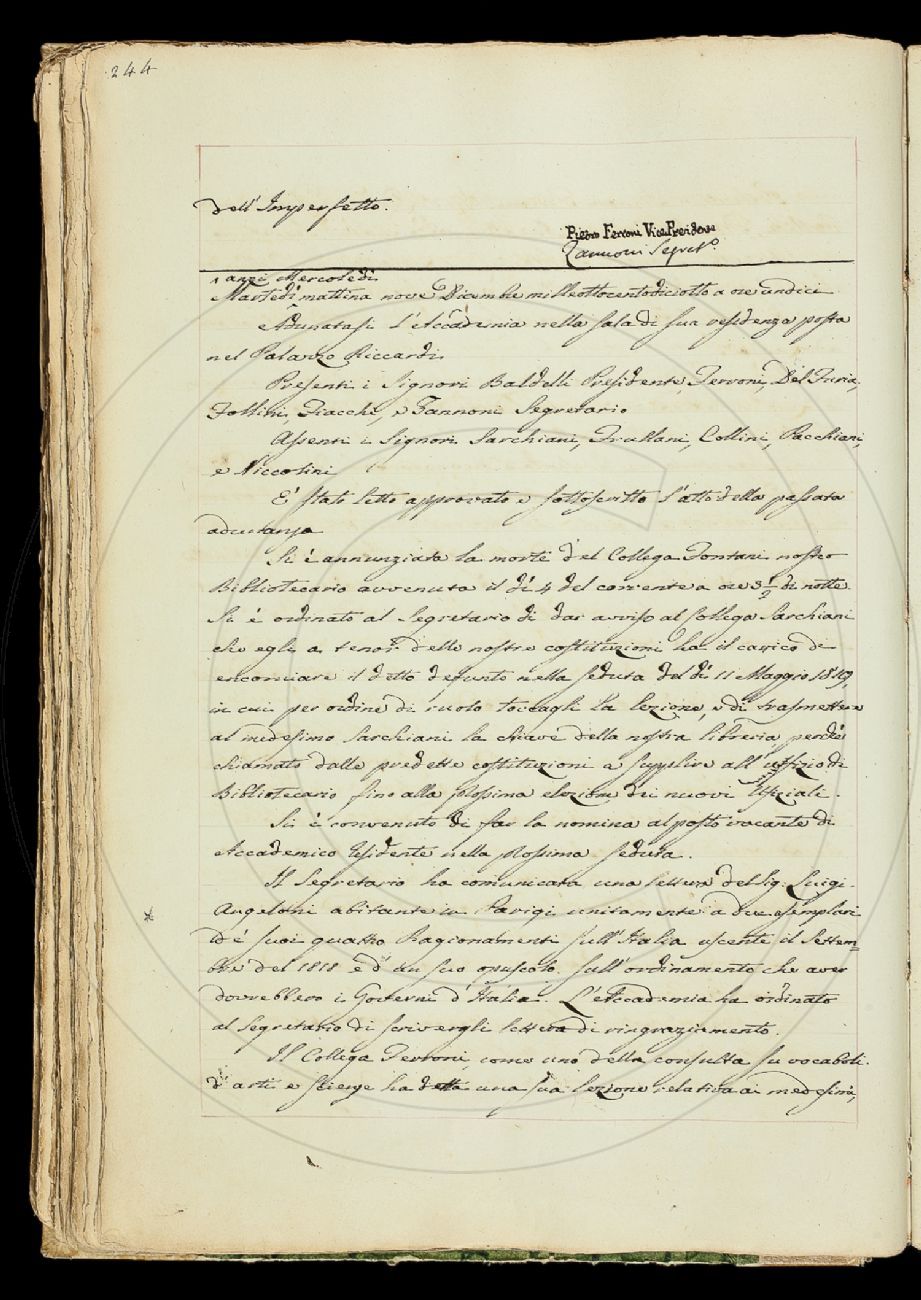 244
dell' Imperfetto.
Pietro Ferroni Vice Presidente
Zannoni Segret.º
anzi Mercoledì
Martedì mattina nove Dicembre milleottocentodiciotto a ore undici
Adunatasi l'Accademia nella sala di sua residenza posta
nel Palazzo Riccardi.
Presenti i Signori Baldelli Presidente, Ferroni, Del Furia,
Follini, Fiacchi, e Zannoni Segretario
Assenti i Signori Sarchiani, Frullani, Collini, Pacchiani,
e Niccolini
E' stato letto approvato e sottoscritto l'atto della passata
adunanza
Si è annunziata la morte del Collega Fontani nostro
Bibliotecario avvenuta il dì 4 del corrente a ore 3 1/2 di notte.
Si è ordinato al Segretario di dar avviso al Collega Sarchiani
che egli a tenor delle nostre costituzioni ha il carico di
encomiare il detto defunto nella seduta del dì 11 Maggio 1819,
in cui per ordine di ruolo toccagli la lezione, e di trasmettere
al medesimo Sarchiani la chiave della nostra libreria perchè
chiamato dalle predette costituzioni a supplire all' uffizio di
Bibliotecario fino alla prossima elezione dei nuovi Ufficiali.
Si è convenuto di far la nomina al posto vacante di
Accademico residente nella prossima seduta.
Il Segretario ha comunicata una lettera del Sig. Luigi
Angeloni abitante in Parigi unitamente a due esemplari
de' suoi quattro Ragionamenti sull' Italia uscente il Settem=
bre del 1818 e d' un suo opuscolo sull' ordinamento che aver
dovrebbero i Governi d' Italia. L'Accademia ha ordinato
al Segretario di scrivergli lettera di ringraziamento.
Il Collega Ferroni, come uno della consulta su vocaboli
d' arti e scienze ha detta una sua lezione relativa ai medesimi,